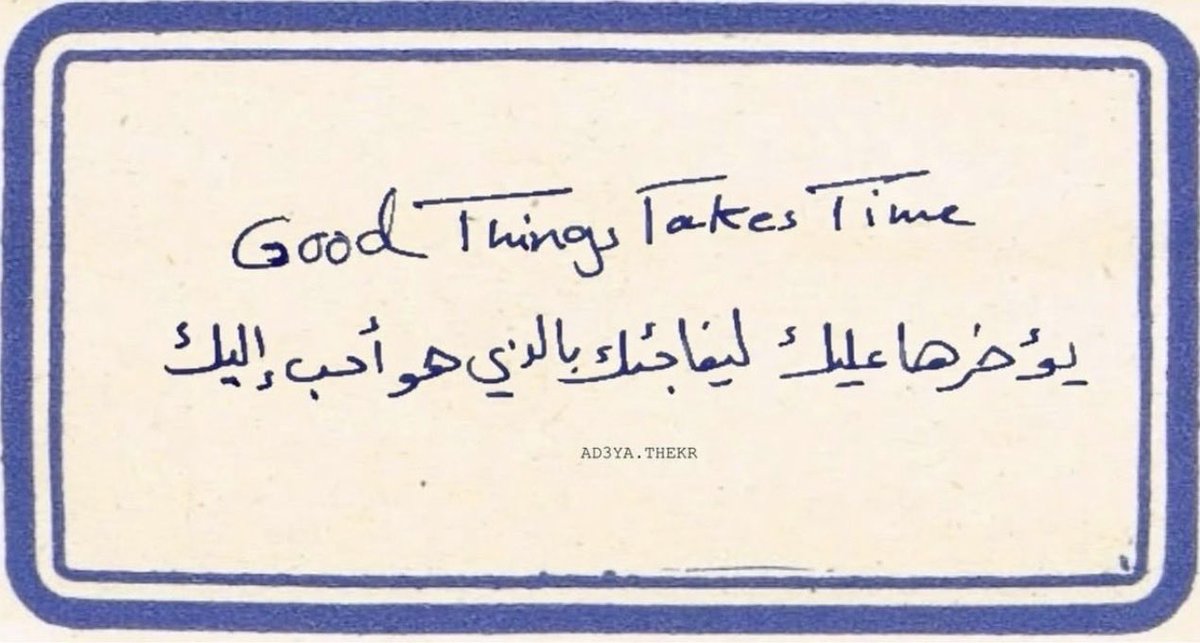 Good Things Takes Time
يؤخرها عليك ليفاجئك بالذي هو أحب إليك
AD3YA.THEKR